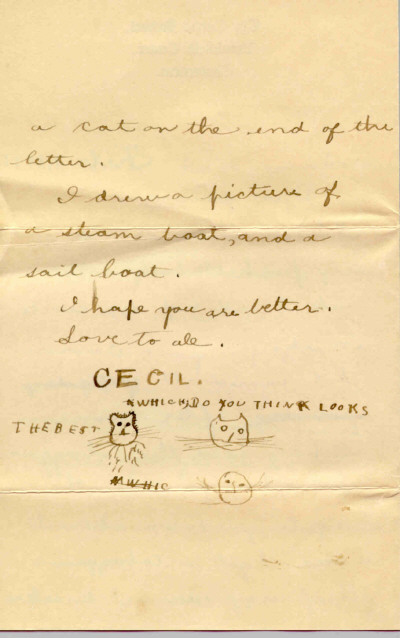 a cat on the end of the
letter.
I drew a picture of
a steam boat, and a
sail boat.
I hope you are better.
Love to ale.
CECIL.
WHICH, DO YOU THINK LOOKS
THE BEST
WHIC